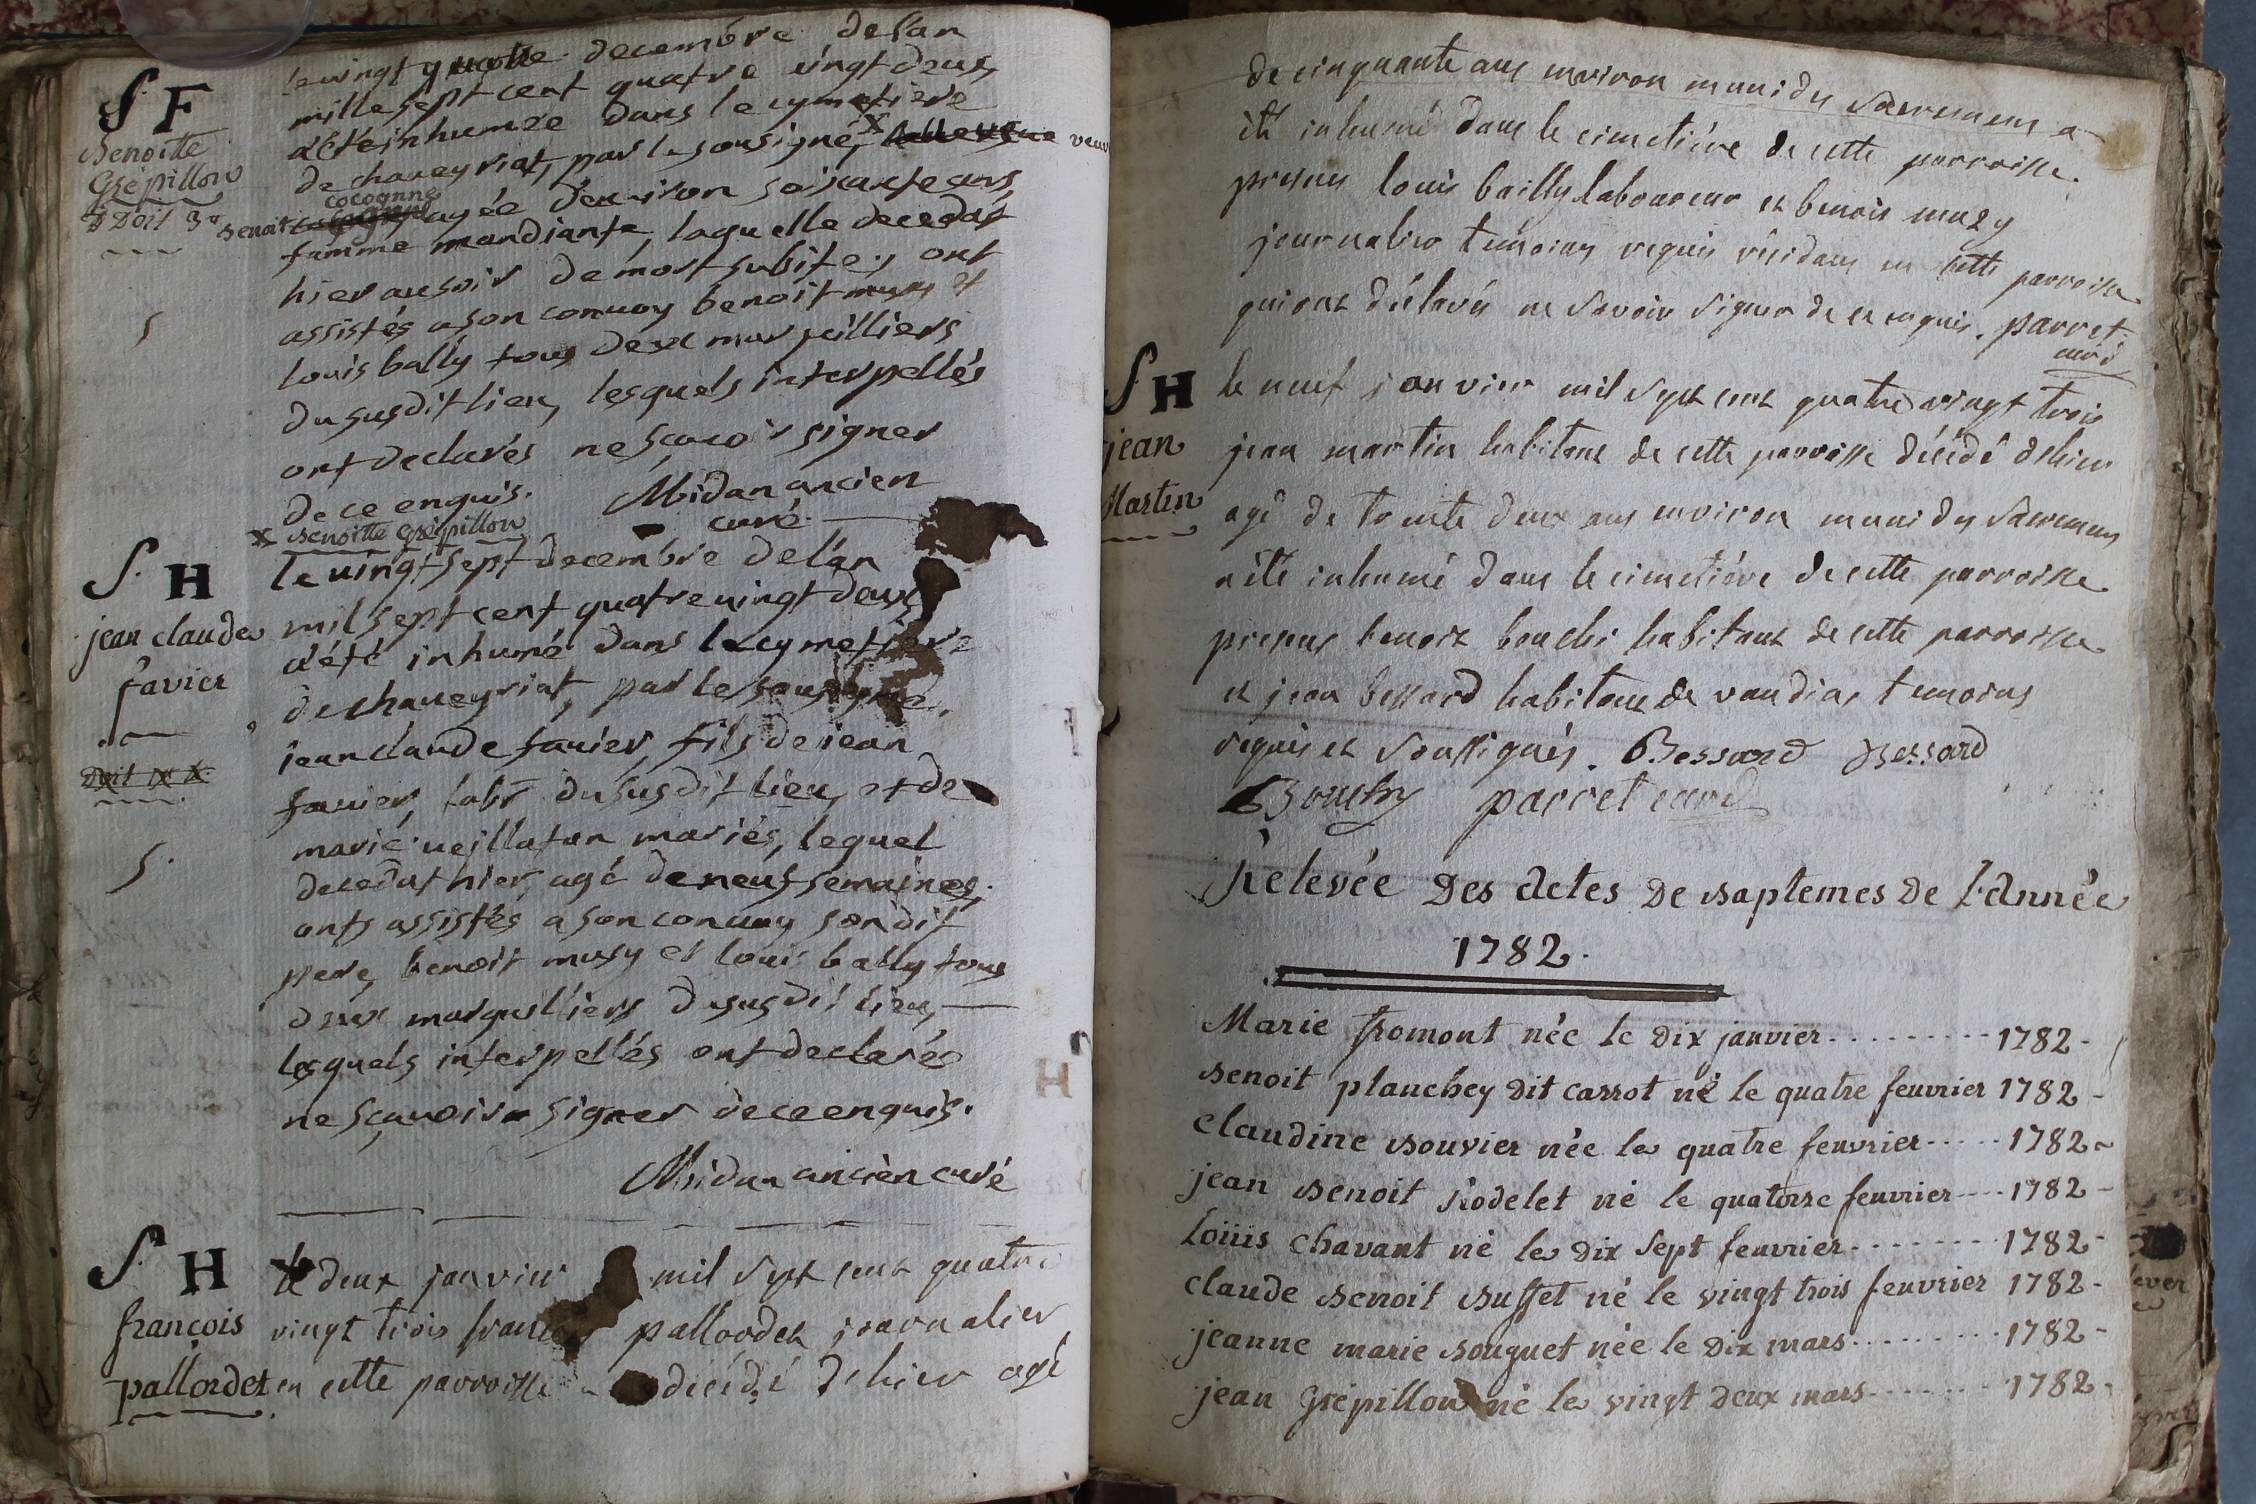 S. F
Benoitte
Grépillon
Doit 3
le vingt quatre decembre de l'an
mille sept cent quatre vingt deux,
a été inhumée dans le cymetiere
de chaueyriat, par le sousigné, X veuve
cocogne
benoit agée d'environ soisante ans,
famme mandiante, laquelle decedat
hier au soir de mort subite; ont
assistés a son conuoy benoit musy et
louis bally tous deux marguilliers
du susdit lieu, lesquels interpellés
ont declarés ne sçavoir signer
de ce enquis. Midan ancien
curé
X Benoitte Grépillon
S. H
jean claude
favier
Doit
le uingt sept decembre de l'an
mil sept cent quatre uingt deux
a été inhumé dans le cymetiere
de chaueyriat, par le sousigné,
jean claude fauier, fils de jean
fauier, labr du susdit lieu, et de
marie ueillatan mariés, lequel
decedat hier, agé de neuf semaines.
onts assistés a son conuoy son dit
pere, benoit musy et louis bally tous
deux marguilliers du susdit lieu,
lesquels interpellés ont declarés
ne sçauoir signer de ce enquis.
Midan ancien curé
S. H
françois
pallordet
le deux janvier mil sept cent quatre
vingt trois francois pallordet journalier
en cette parroisse décédé d'hier agé
de cinquante ans environ muni des sacremens a
été inhumé dans le cimetiére de cette parroisse.
presens louis bailly laboureur et benois muzy
journalier temoins requis résidans en cette parroisse
qui ont déclarés ne savoir signer de ce enquis. parret
curé
S H
jean
Martin
le neuf janvier mil sept cent quatre vingt trois
jean martin habitant de cette parroisse décédé d'hier
agé de trente deux ans environ muni des sacremens
a été inhumé dans le cimetiére de cette parroisse
presens benoit bouchi habitant de cette parroisse
et jean bessard habitant de vandias temoins
requis et soussignés. Bessard Bessard
Bouchy parret curé
Relevée Des Actes De Baptemes De L'Année
1782.
Marie fromont née le dix janvier 1782
Benoit planchey dit carrot né le quatre feuvrier 1782
Claudine Bouvier née le quatre feuvrier 1782
jean Benoit Rodelet né le quatorse feuvrier 1782
Louis Chavant né le dix sept feuvrier 1782
claude Benoit Buffet né le vingt trois feuvrier 1782
jeanne marie Bouguet née le dix mars 1782
jean Grépillon né le vingt deux mars 1782